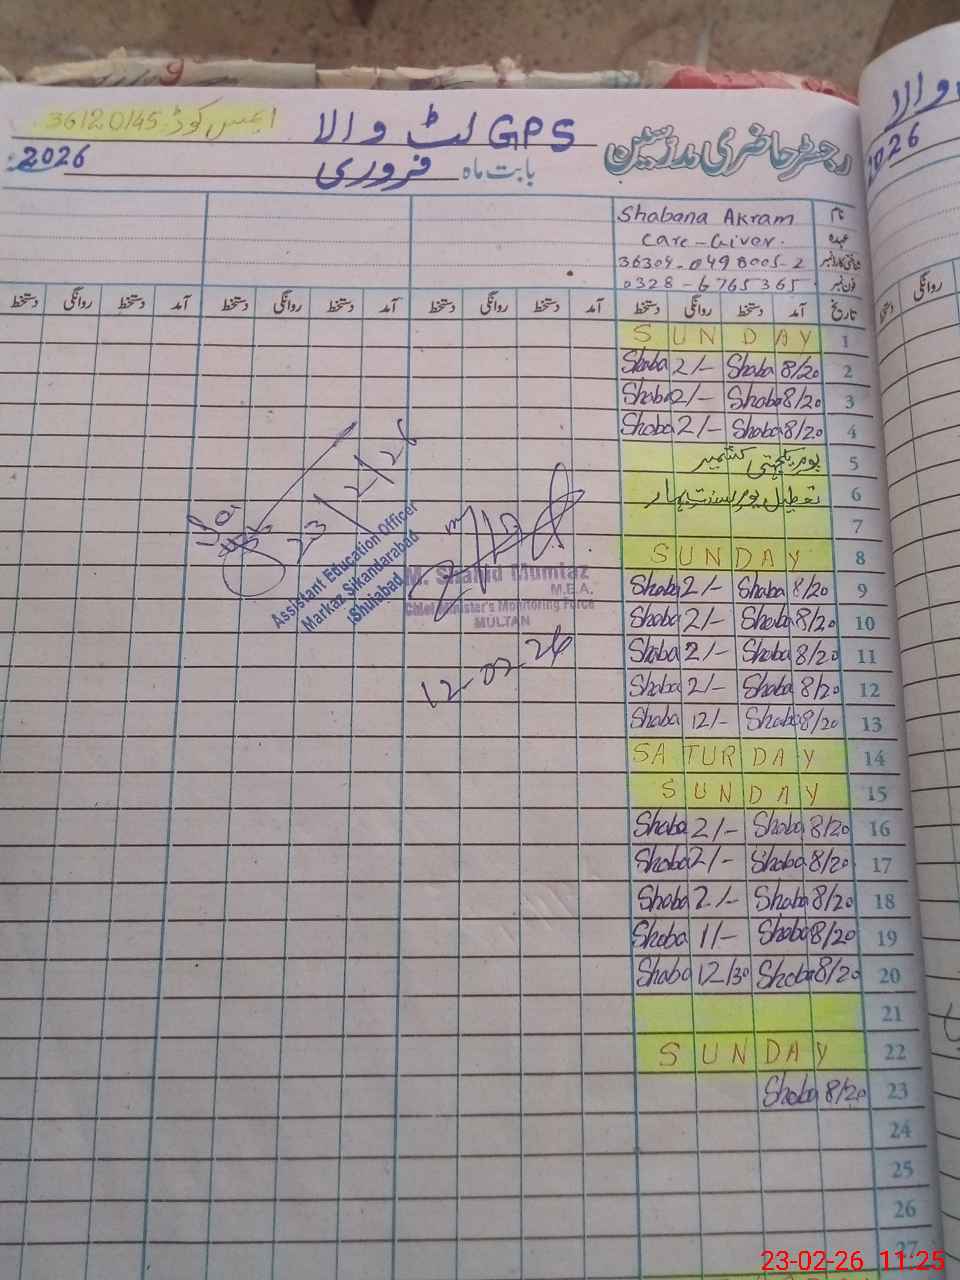 رجسٹر حاضری مدرسین GPS لٹ والا ایمس کوڈ: 36120145
بابت ماہ فروری 2026
نام Shabana Akram
عہدہ Care-Giver.
شناختی کارڈ نمبر 36304-0498005-2
فون نمبر 0328-6765365
تاریخ آمد دستخط روانگی دستخط آمد دستخط روانگی دستخط آمد دستخط روانگی دستخط آمد دستخط روانگی دستخط
1 SUNDAY
2 8/20 Shaba 2/- Shaba
3 8/20 Shaba 2/- Shaba
4 8/20 Shaba 2/- Shaba
5 یوم یکجہتی کشمیر
6 تعطیل یوم بسنت بہار
7
8 SUNDAY
9 8/20 Shaba 2/- Shaba
10 8/20 Shaba 2/- Shaba
11 8/20 Shaba 2/- Shaba
12 8/20 Shaba 2/- Shaba
13 8/20 Shaba 12/- Shaba
14 SATURDAY
15 SUNDAY
16 8/20 Shaba 2/- Shaba
17 8/20 Shaba 2/- Shaba
18 8/20 Shaba 2/- Shaba
19 8/20 Shaba 1/- Shaba
20 8/20 Shaba 12/30 Shaba
21
22 SUNDAY
23 8/20 Shaba
24
25
26
27
M. Shahid Mumtaz
M.E.A.
Chief Minister's Monitoring Force
MULTAN
12-02-26
23/2/26
Assistant Education Officer
Markaz Sikandarabad
Shujabad
والا
2026
روانگی
دستخط
23-02-26 11:25